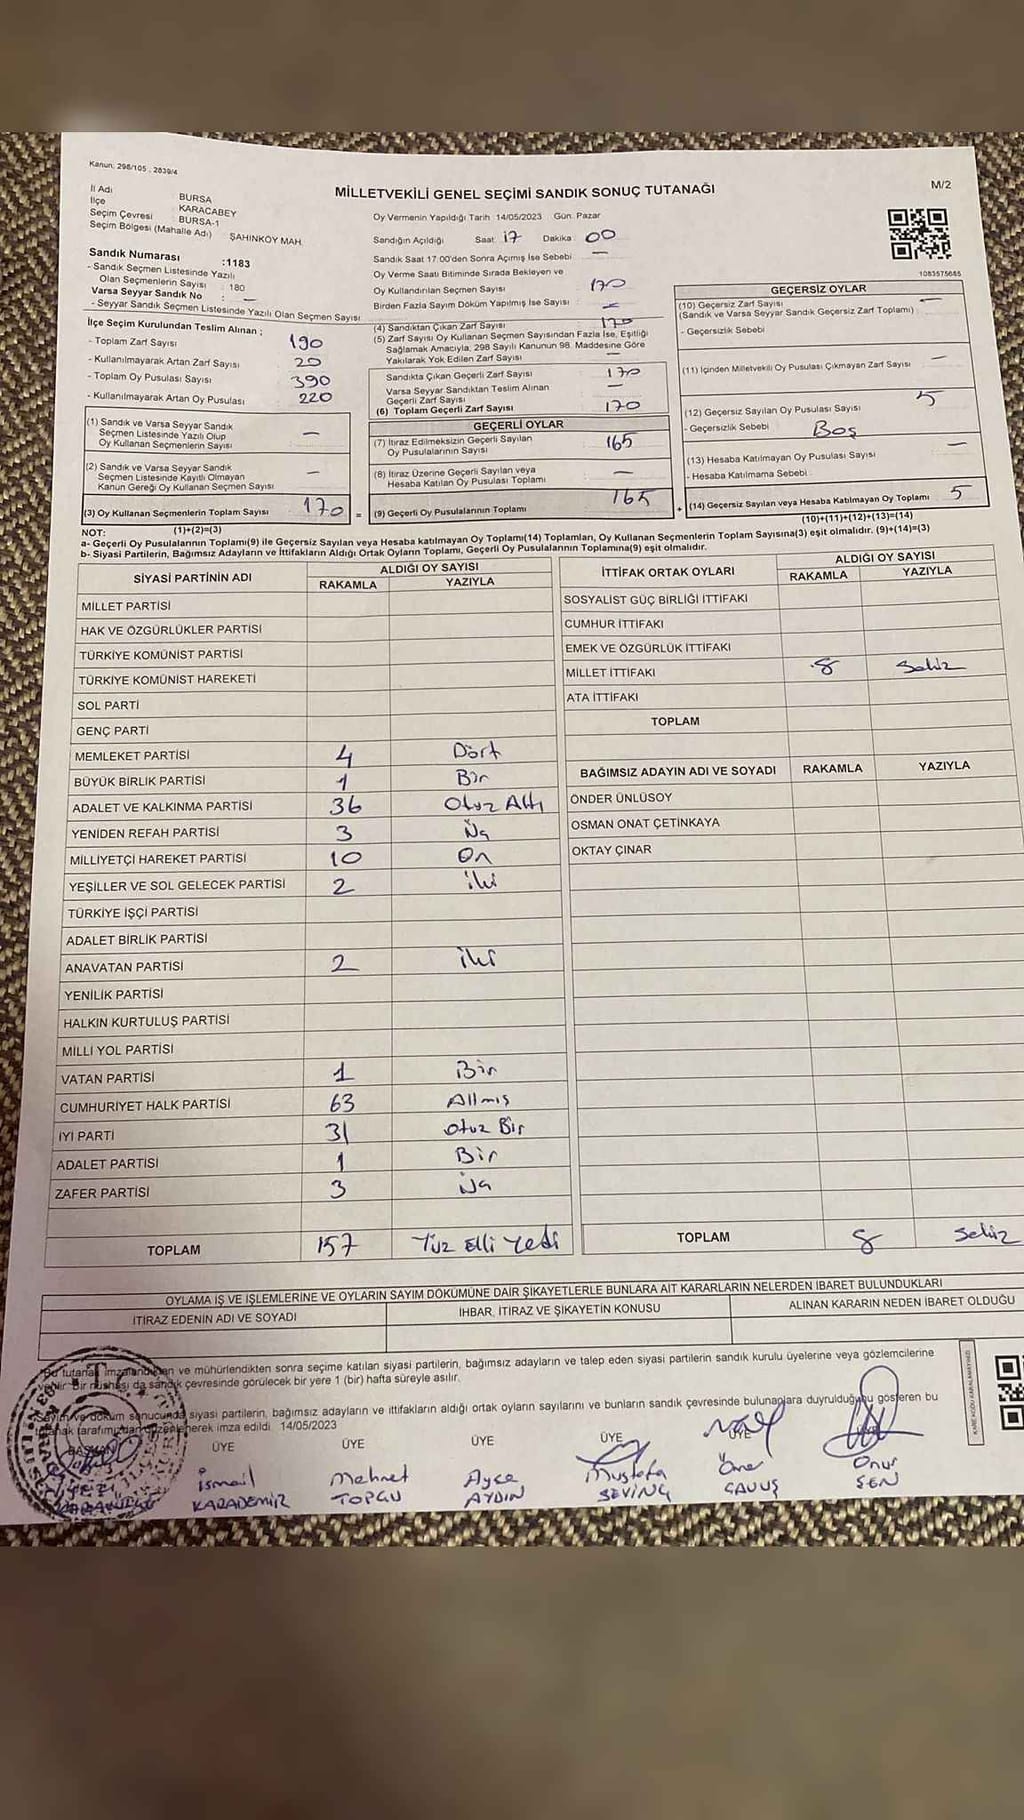 Kanun: 298/105 , 2839/4
MİLLETVEKİLİ GENEL SEÇİMİ SANDIK SONUÇ TUTANAĞI
M/2
İl Adı BURSA
İlçe KARACABEY
Seçim Çevresi : BURSA-1
Seçim Bölgesi (Mahalle Adı) : ŞAHİNKÖY MAH.
Sandık Numarası :1183
- Sandık Seçmen Listesinde Yazılı
Olan Seçmenlerin Sayısı : 180
Varsa Seyyar Sandık No : —
- Seyyar Sandık Seçmen Listesinde Yazılı Olan Seçmen Sayısı :
Oy Vermenin Yapıldığı Tarih 14/05/2023 Gün: Pazar
Sandığın Açıldığı Saat: 17 Dakika 00
Sandık Saat 17.00'den Sonra Açılmış İse Sebebi : —
Oy Verme Saati Bitiminde Sırada Bekleyen ve
Oy Kullandırılan Seçmen Sayısı : 170
Birden Fazla Sayım Döküm Yapılmış İse Sayısı : —
1083575685
İlçe Seçim Kurulundan Teslim Alınan ;
- Toplam Zarf Sayısı : 190
- Kullanılmayarak Artan Zarf Sayısı : 20
- Toplam Oy Pusulası Sayısı : 390
- Kullanılmayarak Artan Oy Pusulası : 220
(1) Sandık ve Varsa Seyyar Sandık
Seçmen Listesinde Yazılı Olup
Oy Kullanan Seçmenlerin Sayısı : —
(2) Sandık ve Varsa Seyyar Sandık
Seçmen Listesinde Kayıtlı Olmayan
Kanun Gereği Oy Kullanan Seçmen Sayısı : —
(3) Oy Kullanan Seçmenlerin Toplam Sayısı : 170 =
(1)+(2)=(3)
(4) Sandıktan Çıkan Zarf Sayısı : 170
(5) Zarf Sayısı Oy Kullanan Seçmen Sayısından Fazla İse, Eşitliği
Sağlamak Amacıyla, 298 Sayılı Kanunun 98. Maddesine Göre
Yakılarak Yok Edilen Zarf Sayısı : —
Sandıkta Çıkan Geçerli Zarf Sayısı : 170
Varsa Seyyar Sandıktan Teslim Alınan
Geçerli Zarf Sayısı : —
(6) Toplam Geçerli Zarf Sayısı : 170
GEÇERLİ OYLAR
(7) İtiraz Edilmeksizin Geçerli Sayılan
Oy Pusulalarının Sayısı : 165
(8) İtiraz Üzerine Geçerli Sayılan veya
Hesaba Katılan Oy Pusulası Toplamı : —
(9) Geçerli Oy Pusulalarının Toplamı : 165 +
GEÇERSİZ OYLAR
(10) Geçersiz Zarf Sayısı : —
(Sandık ve Varsa Seyyar Sandık Geçersiz Zarf Toplamı)
- Geçersizlik Sebebi :
(11) İçinden Milletvekili Oy Pusulası Çıkmayan Zarf Sayısı : —
(12) Geçersiz Sayılan Oy Pusulası Sayısı : 5
- Geçersizlik Sebebi : Boş
(13) Hesaba Katılmayan Oy Pusulası Sayısı : —
- Hesaba Katılmama Sebebi :
(14) Geçersiz Sayılan veya Hesaba Katılmayan Oy Toplamı : 5
(10)+(11)+(12)+(13)=(14)
NOT:
a- Geçerli Oy Pusulalarının Toplamı(9) ile Geçersiz Sayılan veya Hesaba katılmayan Oy Toplamı(14) Toplamları, Oy Kullanan Seçmenlerin Toplam Sayısına(3) eşit olmalıdır. (9)+(14)=(3)
b- Siyasi Partilerin, Bağımsız Adayların ve İttifakların Aldığı Ortak Oyların Toplamı, Geçerli Oy Pusulalarının Toplamına(9) eşit olmalıdır.
SİYASİ PARTİNİN ADI ALDIĞI OY SAYISI
RAKAMLA YAZIYLA
MİLLET PARTİSİ
HAK VE ÖZGÜRLÜKLER PARTİSİ
TÜRKİYE KOMÜNİST PARTİSİ
TÜRKİYE KOMÜNİST HAREKETİ
SOL PARTİ
GENÇ PARTİ
MEMLEKET PARTİSİ 4 Dört
BÜYÜK BİRLİK PARTİSİ 1 Bir
ADALET VE KALKINMA PARTİSİ 36 Otuz Altı
YENİDEN REFAH PARTİSİ 3 Üç
MİLLİYETÇİ HAREKET PARTİSİ 10 On
YEŞİLLER VE SOL GELECEK PARTİSİ 2 İki
TÜRKİYE İŞÇİ PARTİSİ
ADALET BİRLİK PARTİSİ
ANAVATAN PARTİSİ 2 İki
YENİLİK PARTİSİ
HALKIN KURTULUŞ PARTİSİ
MİLLİ YOL PARTİSİ
VATAN PARTİSİ 1 Bir
CUMHURİYET HALK PARTİSİ 63 Altmış
İYİ PARTİ 31 Otuz Bir
ADALET PARTİSİ 1 Bir
ZAFER PARTİSİ 3 Üç
TOPLAM 157 Yüz Elli Yedi
İTTİFAK ORTAK OYLARI ALDIĞI OY SAYISI
RAKAMLA YAZIYLA
SOSYALİST GÜÇ BİRLİĞİ İTTİFAKI
CUMHUR İTTİFAKI
EMEK VE ÖZGÜRLÜK İTTİFAKI
MİLLET İTTİFAKI 8 Sekiz
ATA İTTİFAKI
TOPLAM
BAĞIMSIZ ADAYIN ADI VE SOYADI RAKAMLA YAZIYLA
ÖNDER ÜNLÜSOY
OSMAN ONAT ÇETİNKAYA
OKTAY ÇINAR
TOPLAM 8 Sekiz
OYLAMA İŞ VE İŞLEMLERİNE VE OYLARIN SAYIM DÖKÜMÜNE DAİR ŞİKAYETLERLE BUNLARA AİT KARARLARIN NELERDEN İBARET BULUNDUKLARI
İTİRAZ EDENİN ADI VE SOYADI İHBAR, İTİRAZ VE ŞİKAYETİN KONUSU ALINAN KARARIN NEDEN İBARET OLDUĞU
Bu tutanak imzalandıktan ve mühürlendikten sonra seçime katılan siyasi partilerin, bağımsız adayların ve talep eden siyasi partilerin sandık kurulu üyelerine veya gözlemcilerine
verilir. Bir nüshası da sandık çevresinde görülecek bir yere 1 (bir) hafta süreyle asılır.
Sayım ve döküm sonucunda siyasi partilerin, bağımsız adayların ve ittifakların aldığı ortak oyların sayılarını ve bunların sandık çevresinde bulunanlara duyrulduğunu gösteren bu
tutanak tarafımızdan düzenlenerek imza edildi 14/05/2023
BAŞKAN ÜYE ÜYE ÜYE ÜYE ÜYE
İsmail KARADEMİR
Mehmet TOPÇU
Ayşe AYDIN
Mustafa SEVİNÇ
Ömer ÇAVUŞ
Onur ŞEN